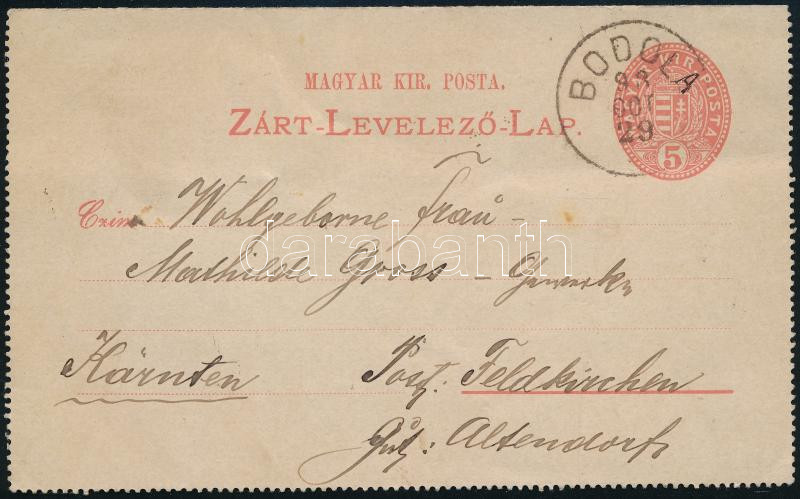 BODOLA
93
OCT
29
MAGYAR KIR. POSTA
5
MAGYAR KIR. POSTA.
ZÁRT-LEVELEZŐ-LAP.
Czim Wohlgeborne Frau -
Mathilde Gross - Gewerkin
darabanth
Kärnten Post: Feldkirchen
Gut: Altendorf